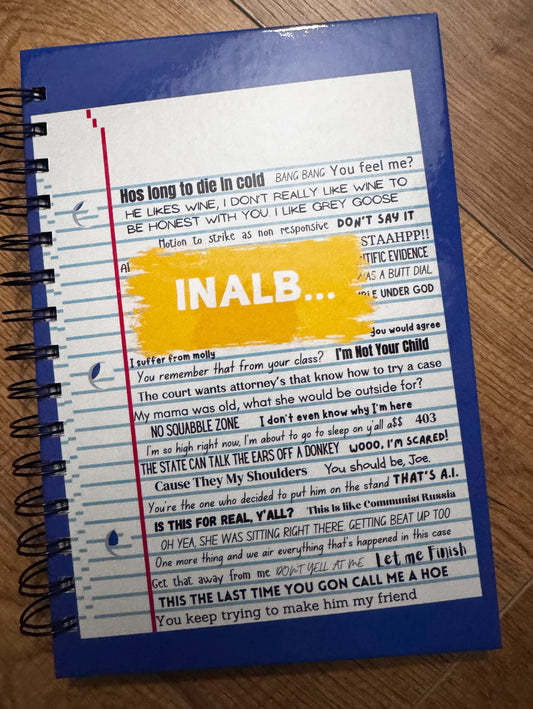 Hos long to die In cold BANG BANG You feel me?
HE LIKES WINE, I DON'T REALLY LIKE WINE TO
BE HONEST WITH YOU I LIKE GREY GOOSE
Motion to strike as non responsive DON'T SAY IT
STAAHPP!!
TIFIC EVIDENCE
WAS A BUTT DIAL
INALB...
UNDER GOD
you would agree
I suffer from molly
You remember that from your class? I'm Not Your Child
The court wants attorney's that know how to try a case
My mama was old, what she would be outside for?
NO SQUABBLE ZONE I don't even know why I'm here
I'm so high right now, I'm about to go to sleep on y'all a$$ 403
THE STATE CAN TALK THE EARS OFF A DONKEY WOOO, I'M SCARED!
Cause They My Shoulders You should be, Joe.
You're the one who decided to put him on the stand THAT'S A.I.
IS THIS FOR REAL, Y'ALL? This is like Communist Russia
OH YEA, SHE WAS SITTING RIGHT THERE. GETTING BEAT UP TOO
One more thing and we air everything that's happened in this case
Get that away from me DON'T YELL AT ME Let me Finish
THIS THE LAST TIME YOU GON CALL ME A HOE
You keep trying to make him my friend